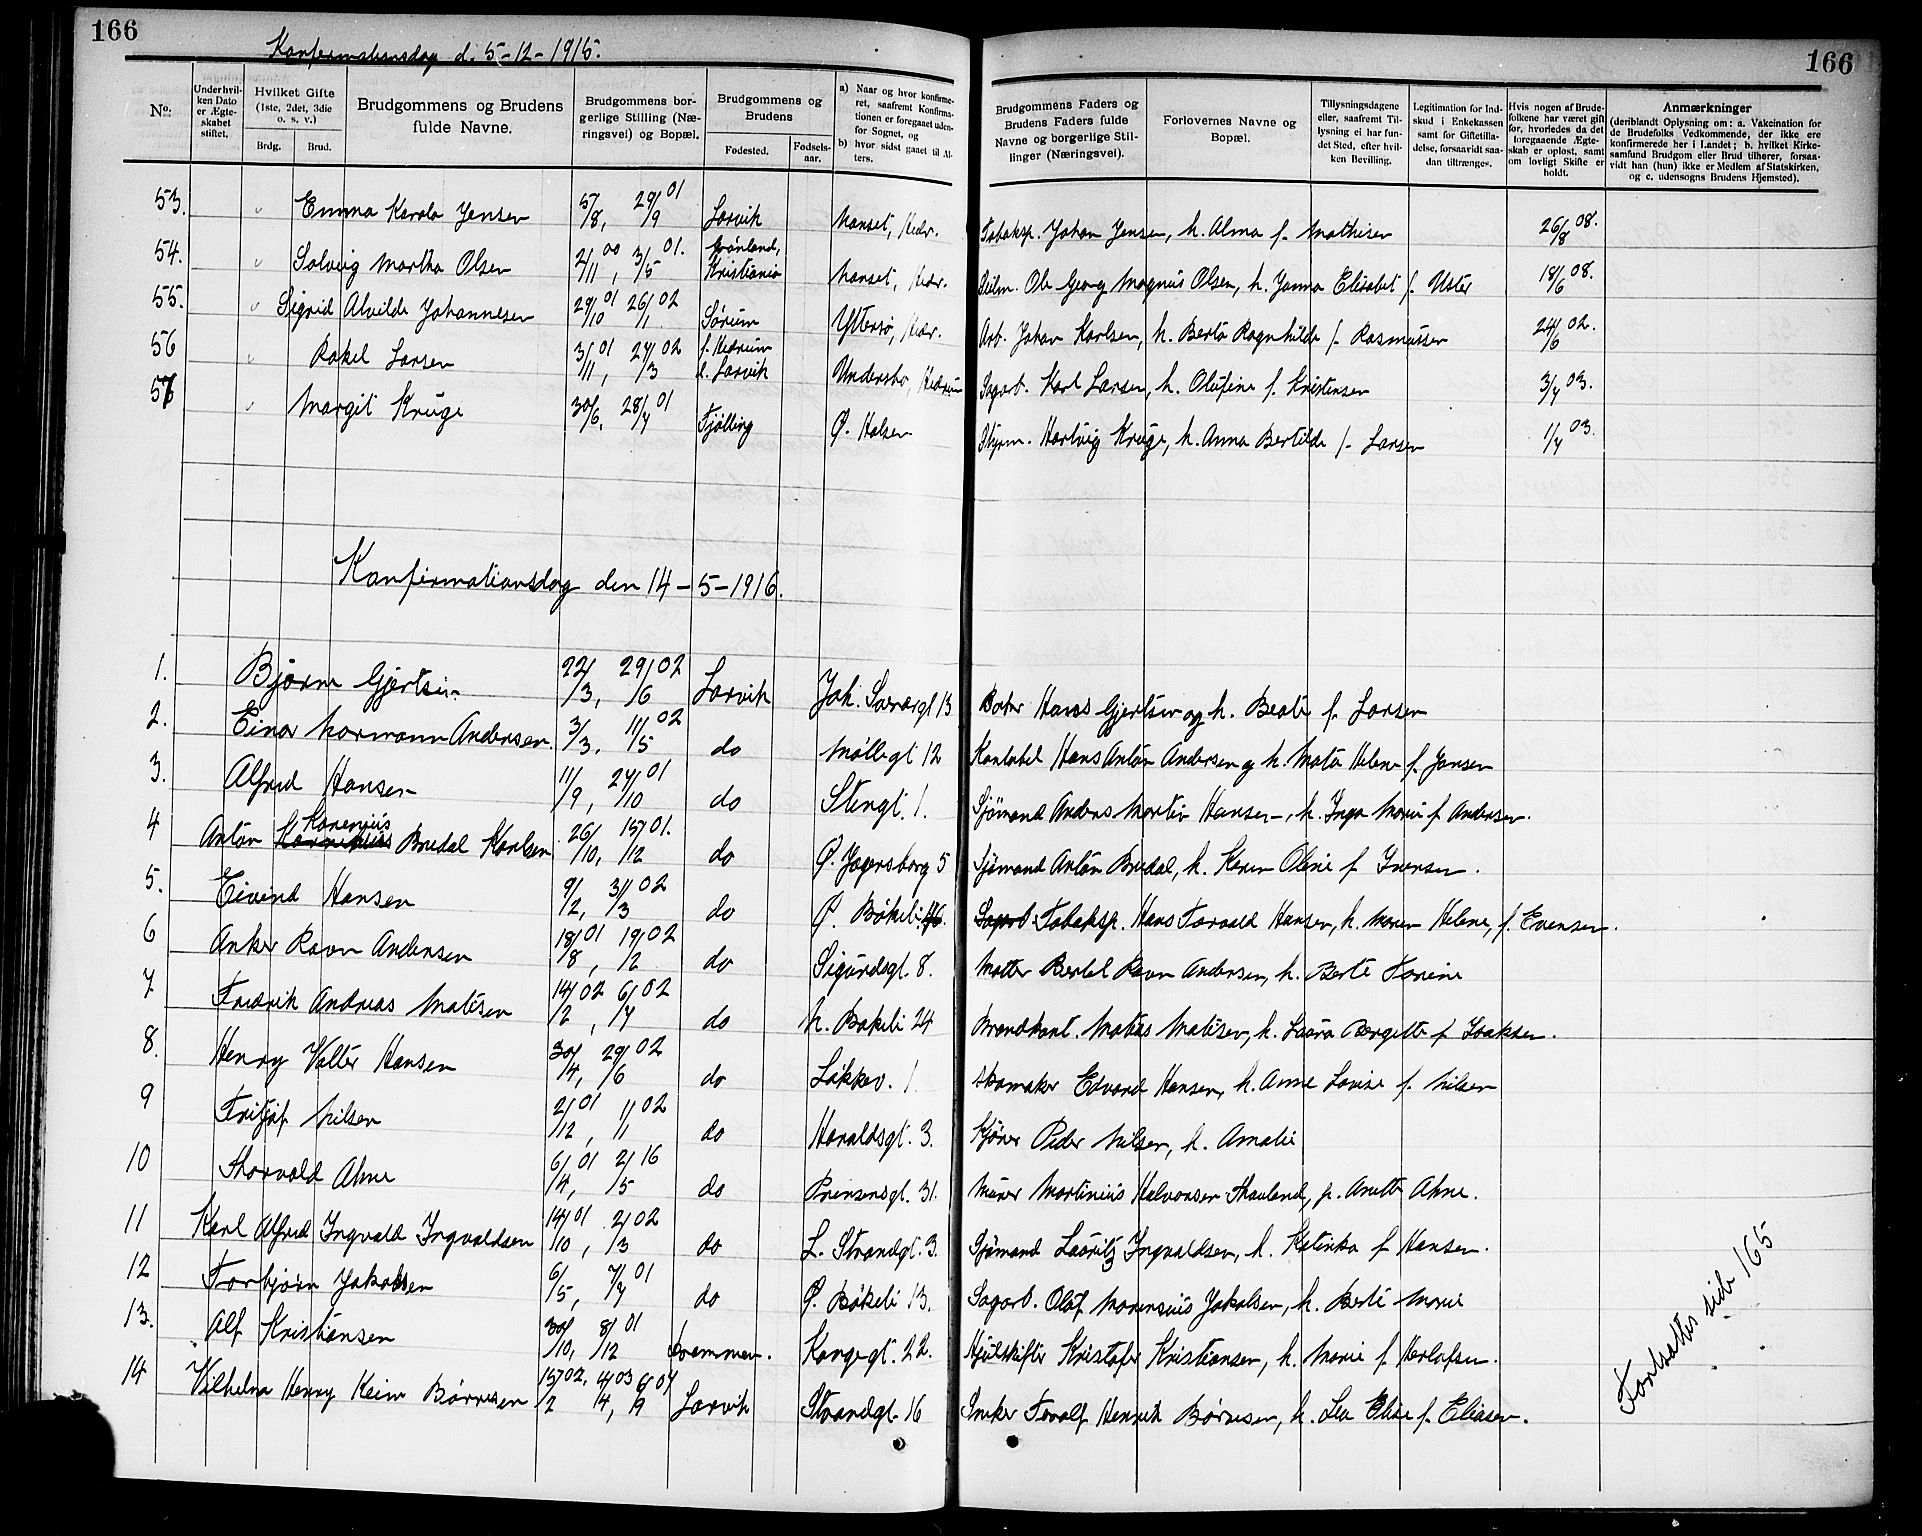 166
Konfirmationsdag d. 5-12-1915.
166
No.
Under hvilken Dato er Ægteskabet stiftet.
Hvilket Gifte (1ste, 2det, 3die o. s. v.)
Brdg. Brud.
Brudgommens og Brudens fulde Navne.
Brudgommens borgerlige Stilling (Næringsvei) og Bopæl.
Brudgommens og Brudens
Fødested. Fødselsaar.
a) Naar og hvor konfirmeret, saafremt Konfirmationen er foregaaet udenfor Sognet, og
b) hvor sidst gaaet til Alters.
Brudgommens Faders og Brudens Faders fulde Navne og borgerlige Stillinger (Næringsvei).
Forlovernes Navne og Bopæl.
Tillysningsdagene eller, saafremt Tillysning ei har fundet Sted, efter hvilken Bevilling.
Legitimation for Indskud i Enkekassen samt for Giftetilladelse, forsaavidt saadan tiltrænges.
Hvis nogen af Brudefolkene har været gift før, hvorledes da det foregaaende Ægteskab er opløst, samt om lovligt Skifte er holdt.
Anmærkninger
(deriblandt Oplysning om: a. Vakcination for de Brudefolks Vedkommende, der ikke ere konfirmerede her i Landet; b. hvilket Kirkesamfund Brudgom eller Brud tilhører, forsaavidt han (hun) ikke er Medlem af Statskirken, og c. udensogns Brudens Hjemsted).
53. Emma Karola Jensen 5/8, 29/9 01 Larvik Nanset, Hedr. Fabaksp. Johan Jensen, h. Alma f. Mathisen 26/8 08.
54. Solveig Martha Olsen 2/11 00, 3/5 01. Grønland, Kristiania Nanset, Hedr. Ole Georg Magnus Olsen, h. Janna Elisabet f. Uster 18/6 08.
55. Sigrid Alvilde Johannesen 29/10 01 26/1 02 Sørum Yttersø, Hedr. Arb. Johan Karlsen, h. Berta Ragnhilde f. Rasmussen 24/6 02.
56 Rakel Larsen 3/11 01, 24/3 02 f. Hedrum d. Larvik Undersbo, Hedrum Sagarb. Karl Larsen, h. Olufine f. Kristensen 3/7 03.
57 Margit Kruge 30/6, 28/7 01 Tjølling Ø. Halsen Styrm. Hartvig Kruge, h. Anna Bertilde f. Larsen 1/7 03.
Konfirmationsdag den 14-5-1916.
1. Bjarne Gjertsen 22/3, 29/6 02 Larvik Joh. Sverresgt 13 Hans Gjertsen og h. Beate f. Larsen
2. Einar Normann Andersen 3/3, 11/5 02 do Møllegt 12 Hans Anton Andersen og h. Mata Helene f. Jansen
3. Alfred Hansen 11/9, 24/10 01 do Stengt. 1. Sjømand Anders Martin Hansen, h. Inga Marie f. Andersen.
4 Anton Karenius Bredal Karlsen 26/10, 15/12 01. do Ø. Jegersborg 5 Sjømand Anton Bredal, h. Karen Oline f. Iversen.
5. Eivind Hansen 9/2, 3/3 02 do Ø. Bøkeli Sagarb. Fabaksp. Hans Torvald Hansen, h. Maren Helene, f. Evensen.
6 Anker Ravn Andersen 18/8 01, 19/2 02 do Sigurdsgt. 8. Matter Bertel Ravn Andersen, h. Berte Torine
7 Fredrik Andreas Matisen 14/2 02, 6/7 02 do N. Bøkeli 24 Brandkonst. Matias Matisen, h. Laura Bergette f. Isaksen.
8. Henry Valter Hansen 30/4, 29/6 02 do Løkkev. 1 Skomaker Edvard Hansen, h. Anne Lovise f. Nilsen
9 Fritjof Nilsen 2/12 01, 1/1 02 do Haraldsgt. 3. Kjører Peder Nilsen, h. Amalie
10 Thorvald Ahne 6/4 01, 2/5 16 do Prinsensgt. 31. Murer Martinius Halvorsen Skauland, p. Anette Ahne.
11 Karl Alfred Ingvald Ingvaldsen 14/10 01, 2/3 02 do L. Strandgt. 3. Sjømand Lauritz Ingvaldsen, h. Katinka f. Hansen.
12 Torbjørn Jakobsen 6/5, 7/7 01 do Ø. Bøkeli 13. Sagarb. Olaf Marensius Jakobsen, h. Berte Marie
13. Alf Kristiansen 30/10, 8/12 01 Drammen. Kongegt. 22. Hjulskifter Kristofer Kristiansen, h. Marie f. Herlofsen.
14 Vilhelm Henry Keim Børresen 15/2 02, 4/4 03 Larvik Strandgt. 16 Snekker Toralf Henrik Børresen, h. Lea Elise f. Eliasen.
Fortsættes side 165